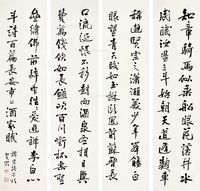 知章騎馬似乘船眼花落井水
底眠汝陽三斗始朝天道逢麴車
稱避賢宗之瀟灑美少年舉觴白
眼望青天皎如玉樹臨風前蘇晉長
口流涎恨不移封向酒泉左相日興
費萬錢飲如長鯨吸百川銜杯樂聖
齋繡佛前醉中往往愛逃禪李白一
斗詩百篇長安市上酒家眠